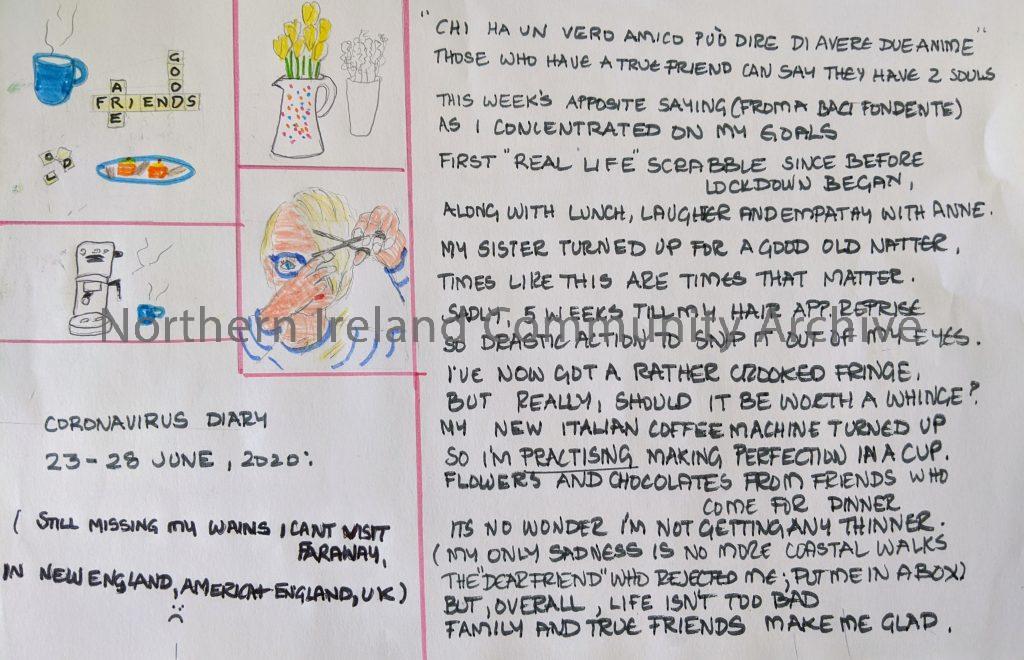 GOOD
ARE
FRIENDS
CORONAVIRUS DIARY
23-28 JUNE, 2020:
( STILL MISSING MY WAINS I CANT VISIT
FARAWAY,
IN NEW ENGLAND, AMERICA + ENGLAND, UK )
"CHI HA UN VERO AMICO PUÒ DIRE DI AVERE DUE ANIME"
THOSE WHO HAVE A TRUE FRIEND CAN SAY THEY HAVE 2 SOULS
THIS WEEK'S APPOSITE SAYING (FROM A BACI FONDENTE)
AS I CONCENTRATED ON MY GOALS
FIRST "REAL LIFE" SCRABBLE SINCE BEFORE
LOCKDOWN BEGAN,
ALONG WITH LUNCH, LAUGHTER AND EMPATHY WITH ANNE.
MY SISTER TURNED UP FOR A GOOD OLD NATTER,
TIMES LIKE THIS ARE TIMES THAT MATTER.
SADLY, 5 WEEKS TILL MY HAIR APP. REPRISE
SO DRASTIC ACTION TO SNIP IT OUT OF MY EYES.
I'VE NOW GOT A RATHER CROOKED FRINGE,
BUT REALLY, SHOULD IT BE WORTH A WHINGE?
MY NEW ITALIAN COFFEE MACHINE TURNED UP
SO I'M PRACTISING MAKING PERFECTION IN A CUP.
FLOWERS AND CHOCOLATES FROM FRIENDS WHO
COME FOR DINNER
ITS NO WONDER I'M NOT GETTING ANY THINNER.
(MY ONLY SADNESS IS NO MORE COASTAL WALKS
THE "DEAR FRIEND" WHO REJECTED ME; PUT ME IN A BOX)
BUT, OVERALL, LIFE ISN'T TOO BAD
FAMILY AND TRUE FRIENDS MAKE ME GLAD.
Northern Ireland Community Archive